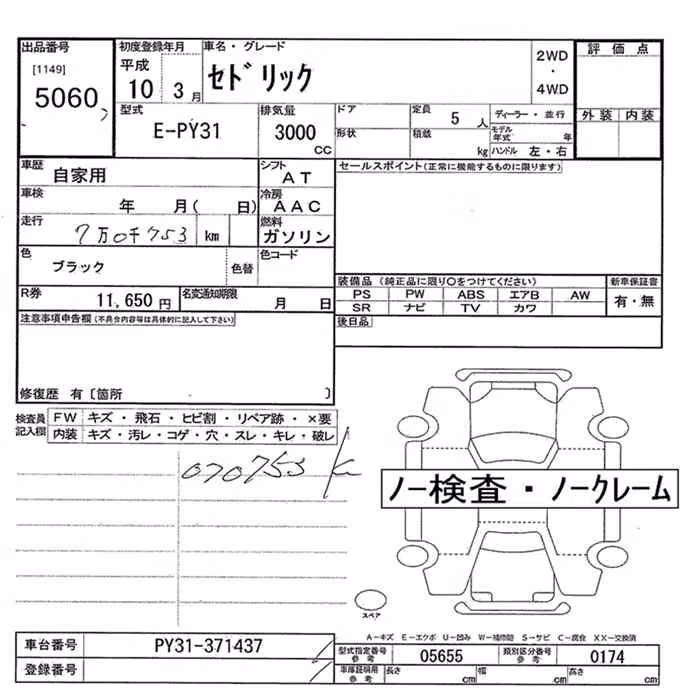 出品番号
[1149]
5060
初度登録年月
平成
10 3月
車名・グレード
セドリック
2WD
・
4WD
評価点
外装 内装
型式
E-PY31
排気量
3000
CC
ドア
形状
定員 5 人
積載 kg
ディーラー・並行
モデル年式 年
ハンドル 左・右
車歴
自家用
シフト
AT
セールスポイント(正常に機能するものに限ります)
車検
年 月( 日)
冷房
AAC
走行
7万0千753 km
燃料
ガソリン
色
ブラック
色替
色コード
R券
11,650円
名変通知期限
月 日
装備品 (純正品に限り○をつけてください)
PS PW ABS エアB AW
SR ナビ TV カワ
新車保証書
有・無
後日品
注意事項申告欄(不具合内容等は具体的に記入して下さい)
修復歴 有〔箇所 〕
検査員記入欄
FW キズ・飛石・ヒビ割・リペア跡・×要
内装 キズ・汚レ・コゲ・穴・スレ・キレ・破レ
070753 K
ノー検査・ノークレーム
スペア
A-キズ E-エクボ U-凹み W-補修跡 S-サビ C-腐食 XX-交換済
車台番号 PY31-371437
登録番号
型式指定番号 参考 05655
類別区分番号 参考 0174
車庫証明用 参考 長さ cm 幅 cm 高さ cm